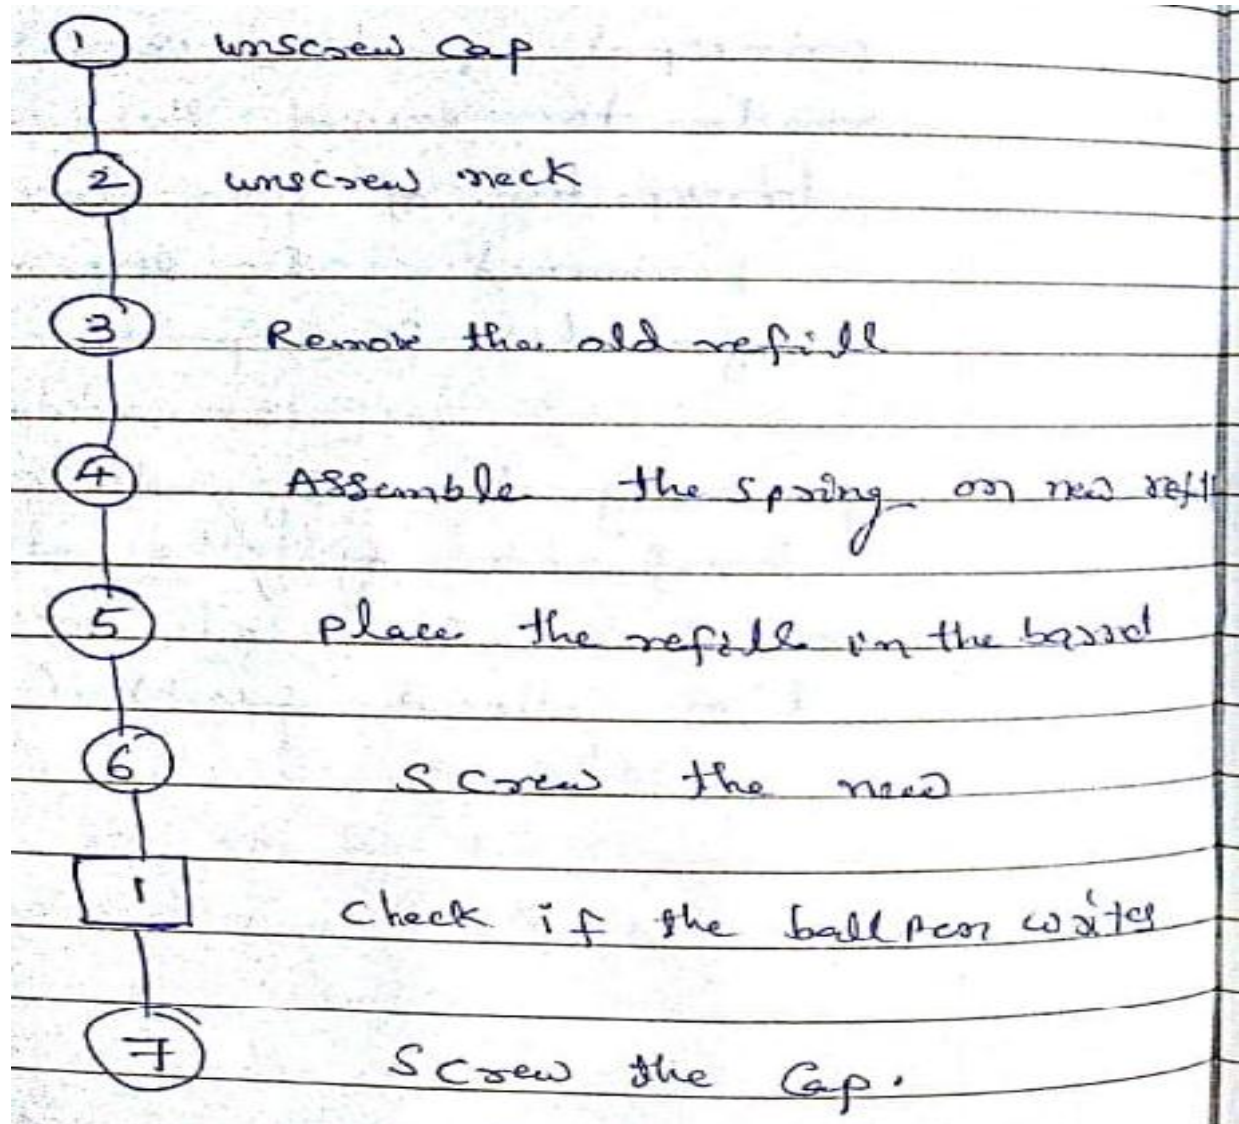 1 unscrew cap
2 unscrew neck
3 Remove the old refill
4 Assemble the spring on new refil
5 place the refill in the
6 Screw the new
1 check if the ball pen writes
7 Screw the Cap.